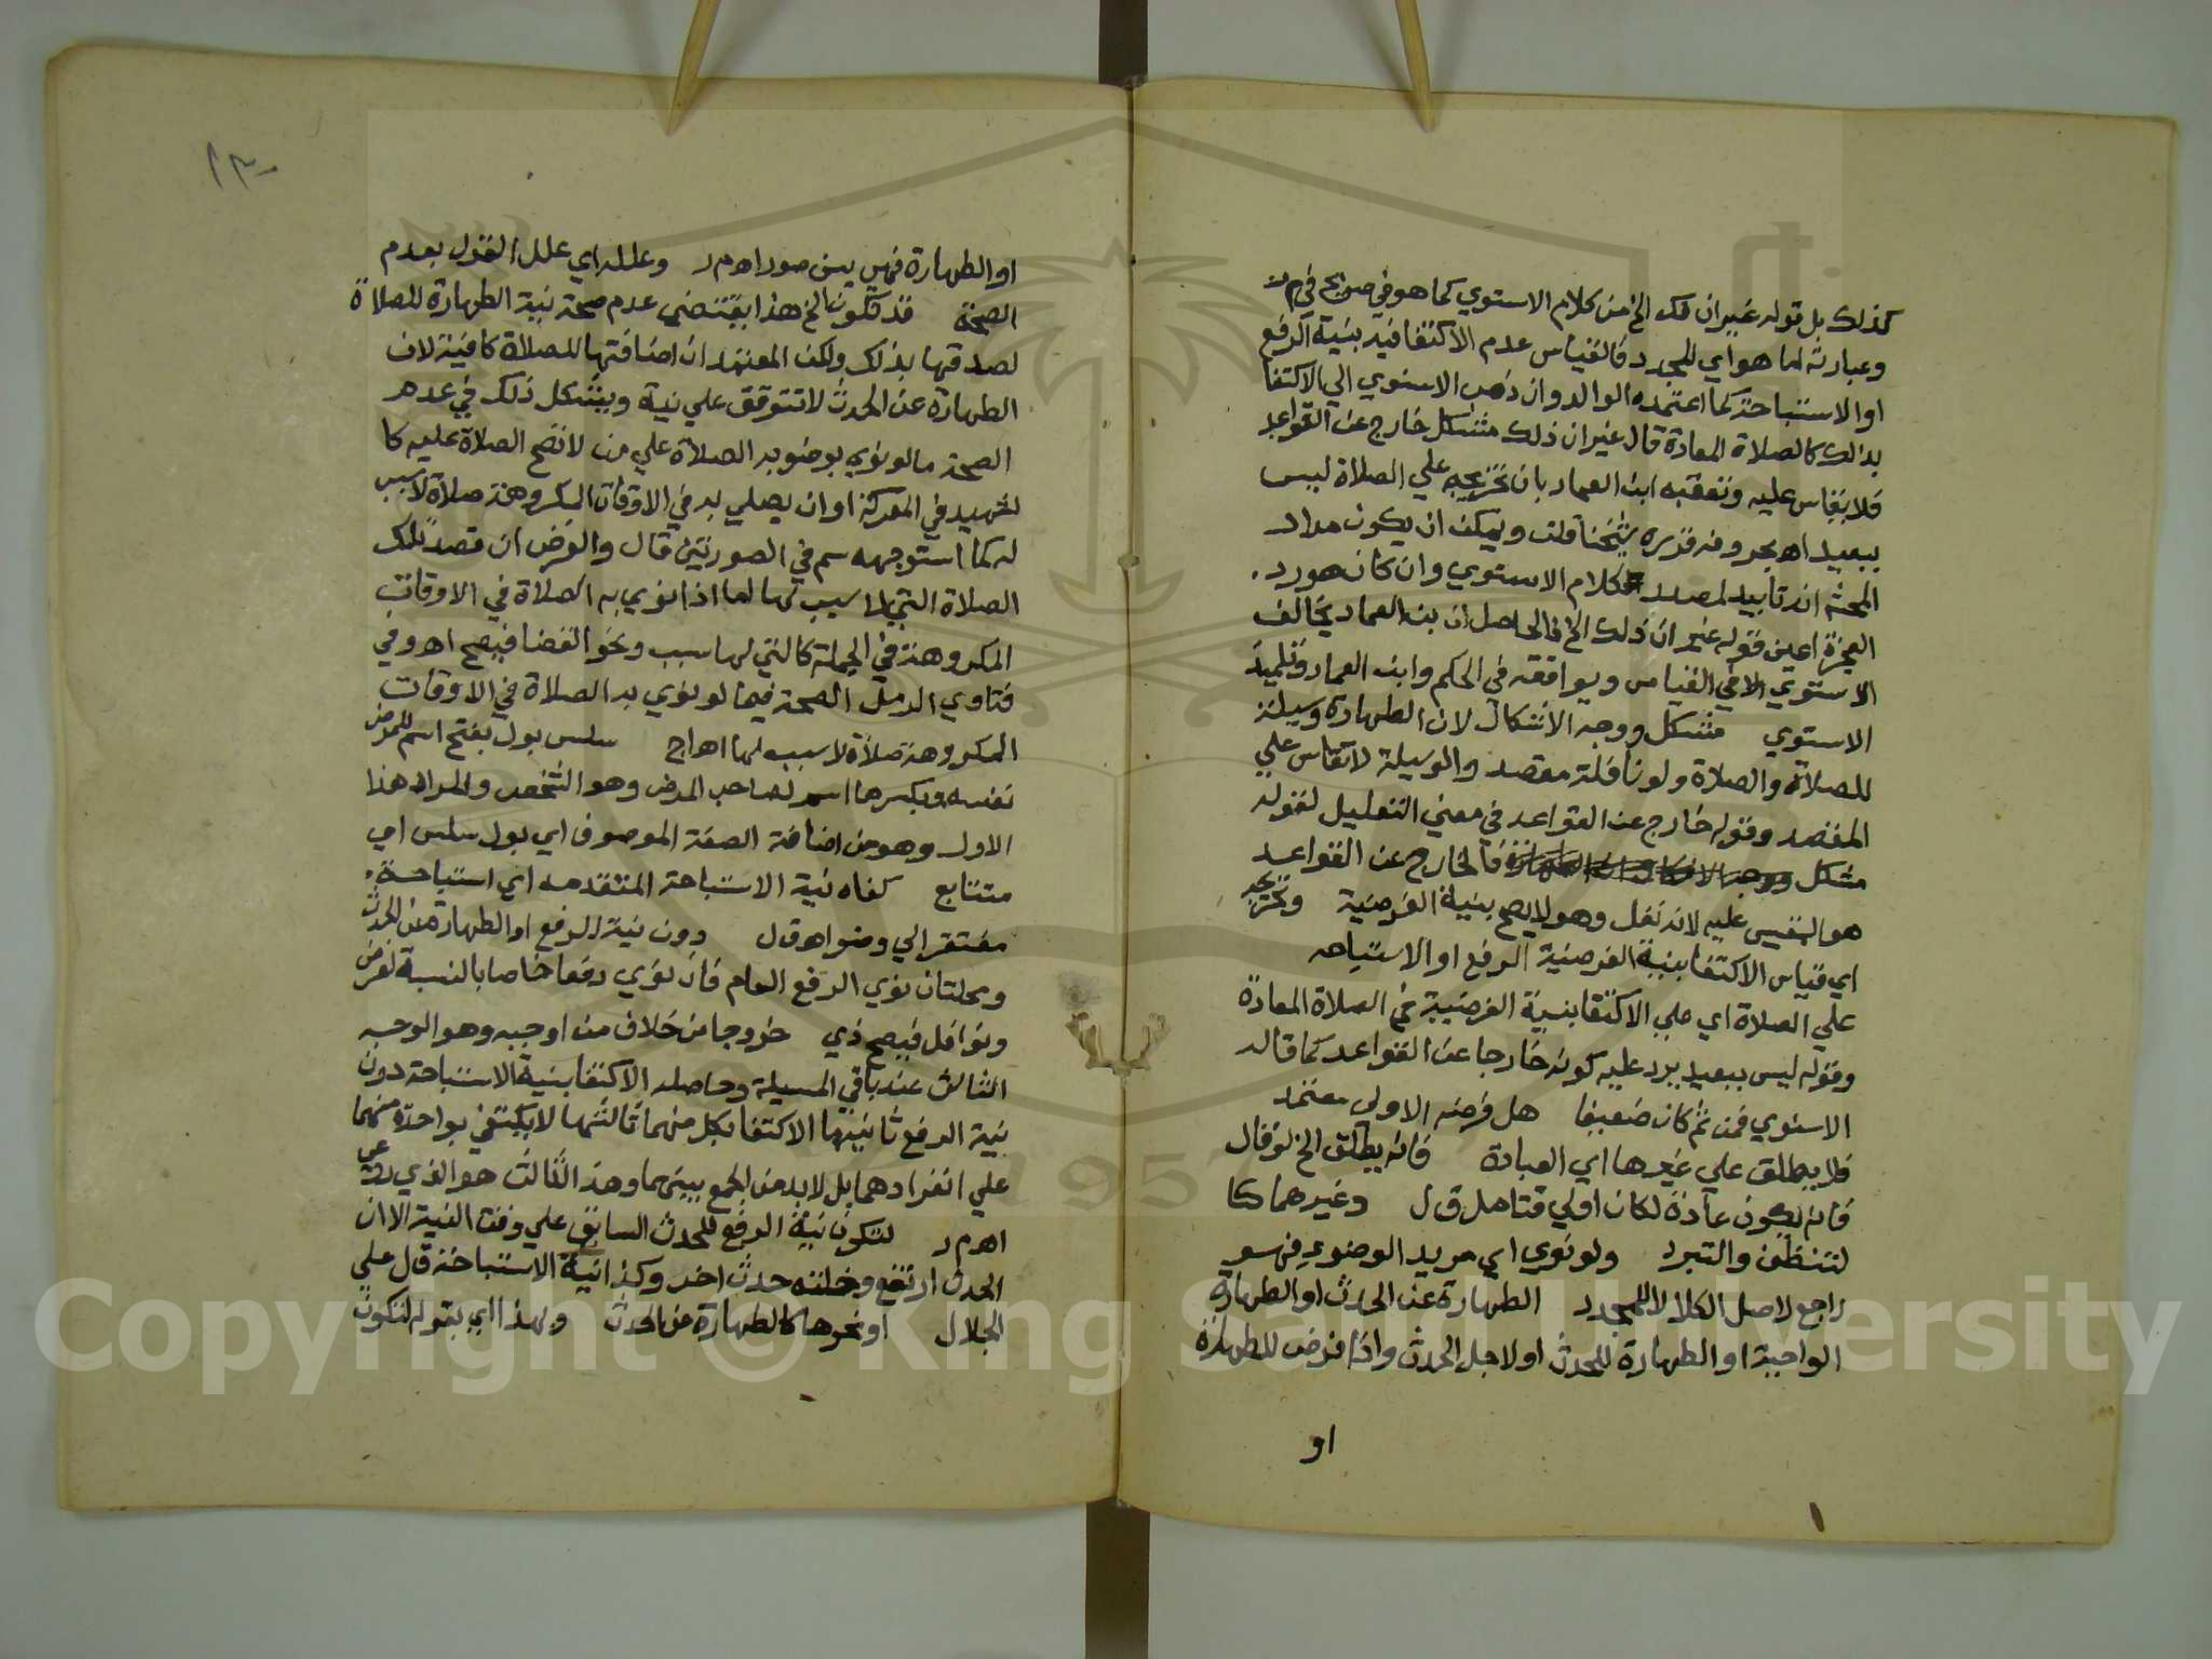 كذلك بل قوله غير ان ذلك الخ من كلام الاسنوي كما هو في صريح في م ر
وعبارته اما هو اي المجدد فالقياس عدم الاكتفا فيه بنية الرفع
او الاستباحة كما اعتمده الوالد وان ذهب الاسنوي الي الاكتفا
بذلك كالصلاة المعادة قال غير ان ذلك مشكل خارج عن القواعد
فلا يقاس عليه وتعقبه ابن العماد بان تخريجه علي الصلاة ليس
ببعيد اه بحروفه قرره شيخنا قلت ويمكن ان يكون مراد
المحشي انه تاييد لصدر كلام الاسنوي وان كان هو رد
العجزه اعين قوله غير ان ذلك الخ فالحاصل ان بن العماد يخالف
الاسنوي في القياس ويوافقه في الحكم وابن العماد تلميذ
الاسنوي مشكل ووجه الاشكال لان الطهارة وسيلة
للصلاة والصلاة ولو نافلة مقصد والوسيلة لا تقاس علي
المقصد وقوله خارج عن القواعد في معني التعليل لقوله
مشكل فالخارج عن القواعد
هو المقيس عليه لانه نفل وهو لا يصح بنية الفرضية وتخريجه
اي قياس الاكتفا بنية الفرضية الرفع او الاستباحه
علي الصلاة اي علي الاكتفا بنية الفرضية في الصلاة المعادة
وقوله ليس ببعيد يرد عليه كونه خارجا عن القواعد كما قاله
الاسنوي فمن ثم كان ضعيفا هل فرضه الاولي معتمد
فلا يطلق علي غيرها اي العبادة فانه يطلق الخ لو قال
فانه يكون عادة لكان اولي فتامل ق ل وغيرهما كا
لتنظف والتبرد ولو نوي اي مريد الوضوء فهو
راجع لاصل الكلام لا للمجدد الطهارة عن الحدث او الطهارة
الواجبة او الطهارة للحدث او لاجل الحدث واذا فرض للطهارة
او
١٣٠
او الطهارة فهي بين صور اه م ر وعلله اي علل القول بعدم
الصحة قد تكون الخ هذا يقتضي عدم صحة نية الطهارة للصلاة
لصدقها بذلك ولكن المعتمد ان اضافتها للصلاة كافية لان
الطهارة عن الحدث لا تتوقف علي نية ويشكل ذلك في عدم
الصحة ما لو نوي بوضوبه الصلاة علي من لا تصح الصلاة عليه كا
لشهيد في المعركة او ان يصلي به في الاوقات المكروهة صلاة لا سبب
له كما استوجهه سم في الصورتين قال والفرض ان قصد تلك
الصلاة التي لا سبب لها اما اذا نوي به الصلاة في الاوقات
المكروهة في الجملة كالتي لها سبب ونحو القضا فيصح اه وفي
فتاوي الرملي الصحة فيما لو نوي به الصلاة في الاوقات
المكروهة صلاة لا سبب لها اه اج سلس بول بفتح اسم للمرض
نفسه وبكسرها اسم لصاحب المرض وهو الشخص والمراد هنا
الاول وهو من اضافة الصفة الموصوف اي بول سلس اي
متتابع كفاه نية الاستباحة المتقدمه اي استباحة
مفتقر الي وضو اه ق ل دون نية الرفع او الطهارة عن الحدث
ومحله ان نوي الرفع العام فان نوي رفعا خاصا بالنسبة لفرض
ونوافل فيصح زي خروجا من خلاف من اوجبه وهو الوجه
الثالث عند باقي المسيلة وحاصله الاكتفا بنية الاستباحة دون
نية الرفع ثانيها الاكتفا بكل منهما ثالثها لا يكتفي بواحدة منهما
علي انفرادهما بل لا بد من الجمع بينهما وهذا الثالث هو الذي روعي
اه م ر لتكون نية الرفع للحدث السابق علي وقت النية الا ان
الحدث ارتفع وخلفه حدث اخر وكذا نية الاستباحة ق ل علي
الجلال او نحوها كالطهارة عن الحدث وبهذا اي بقوله لتكون
Copyright © King Saud University
1957